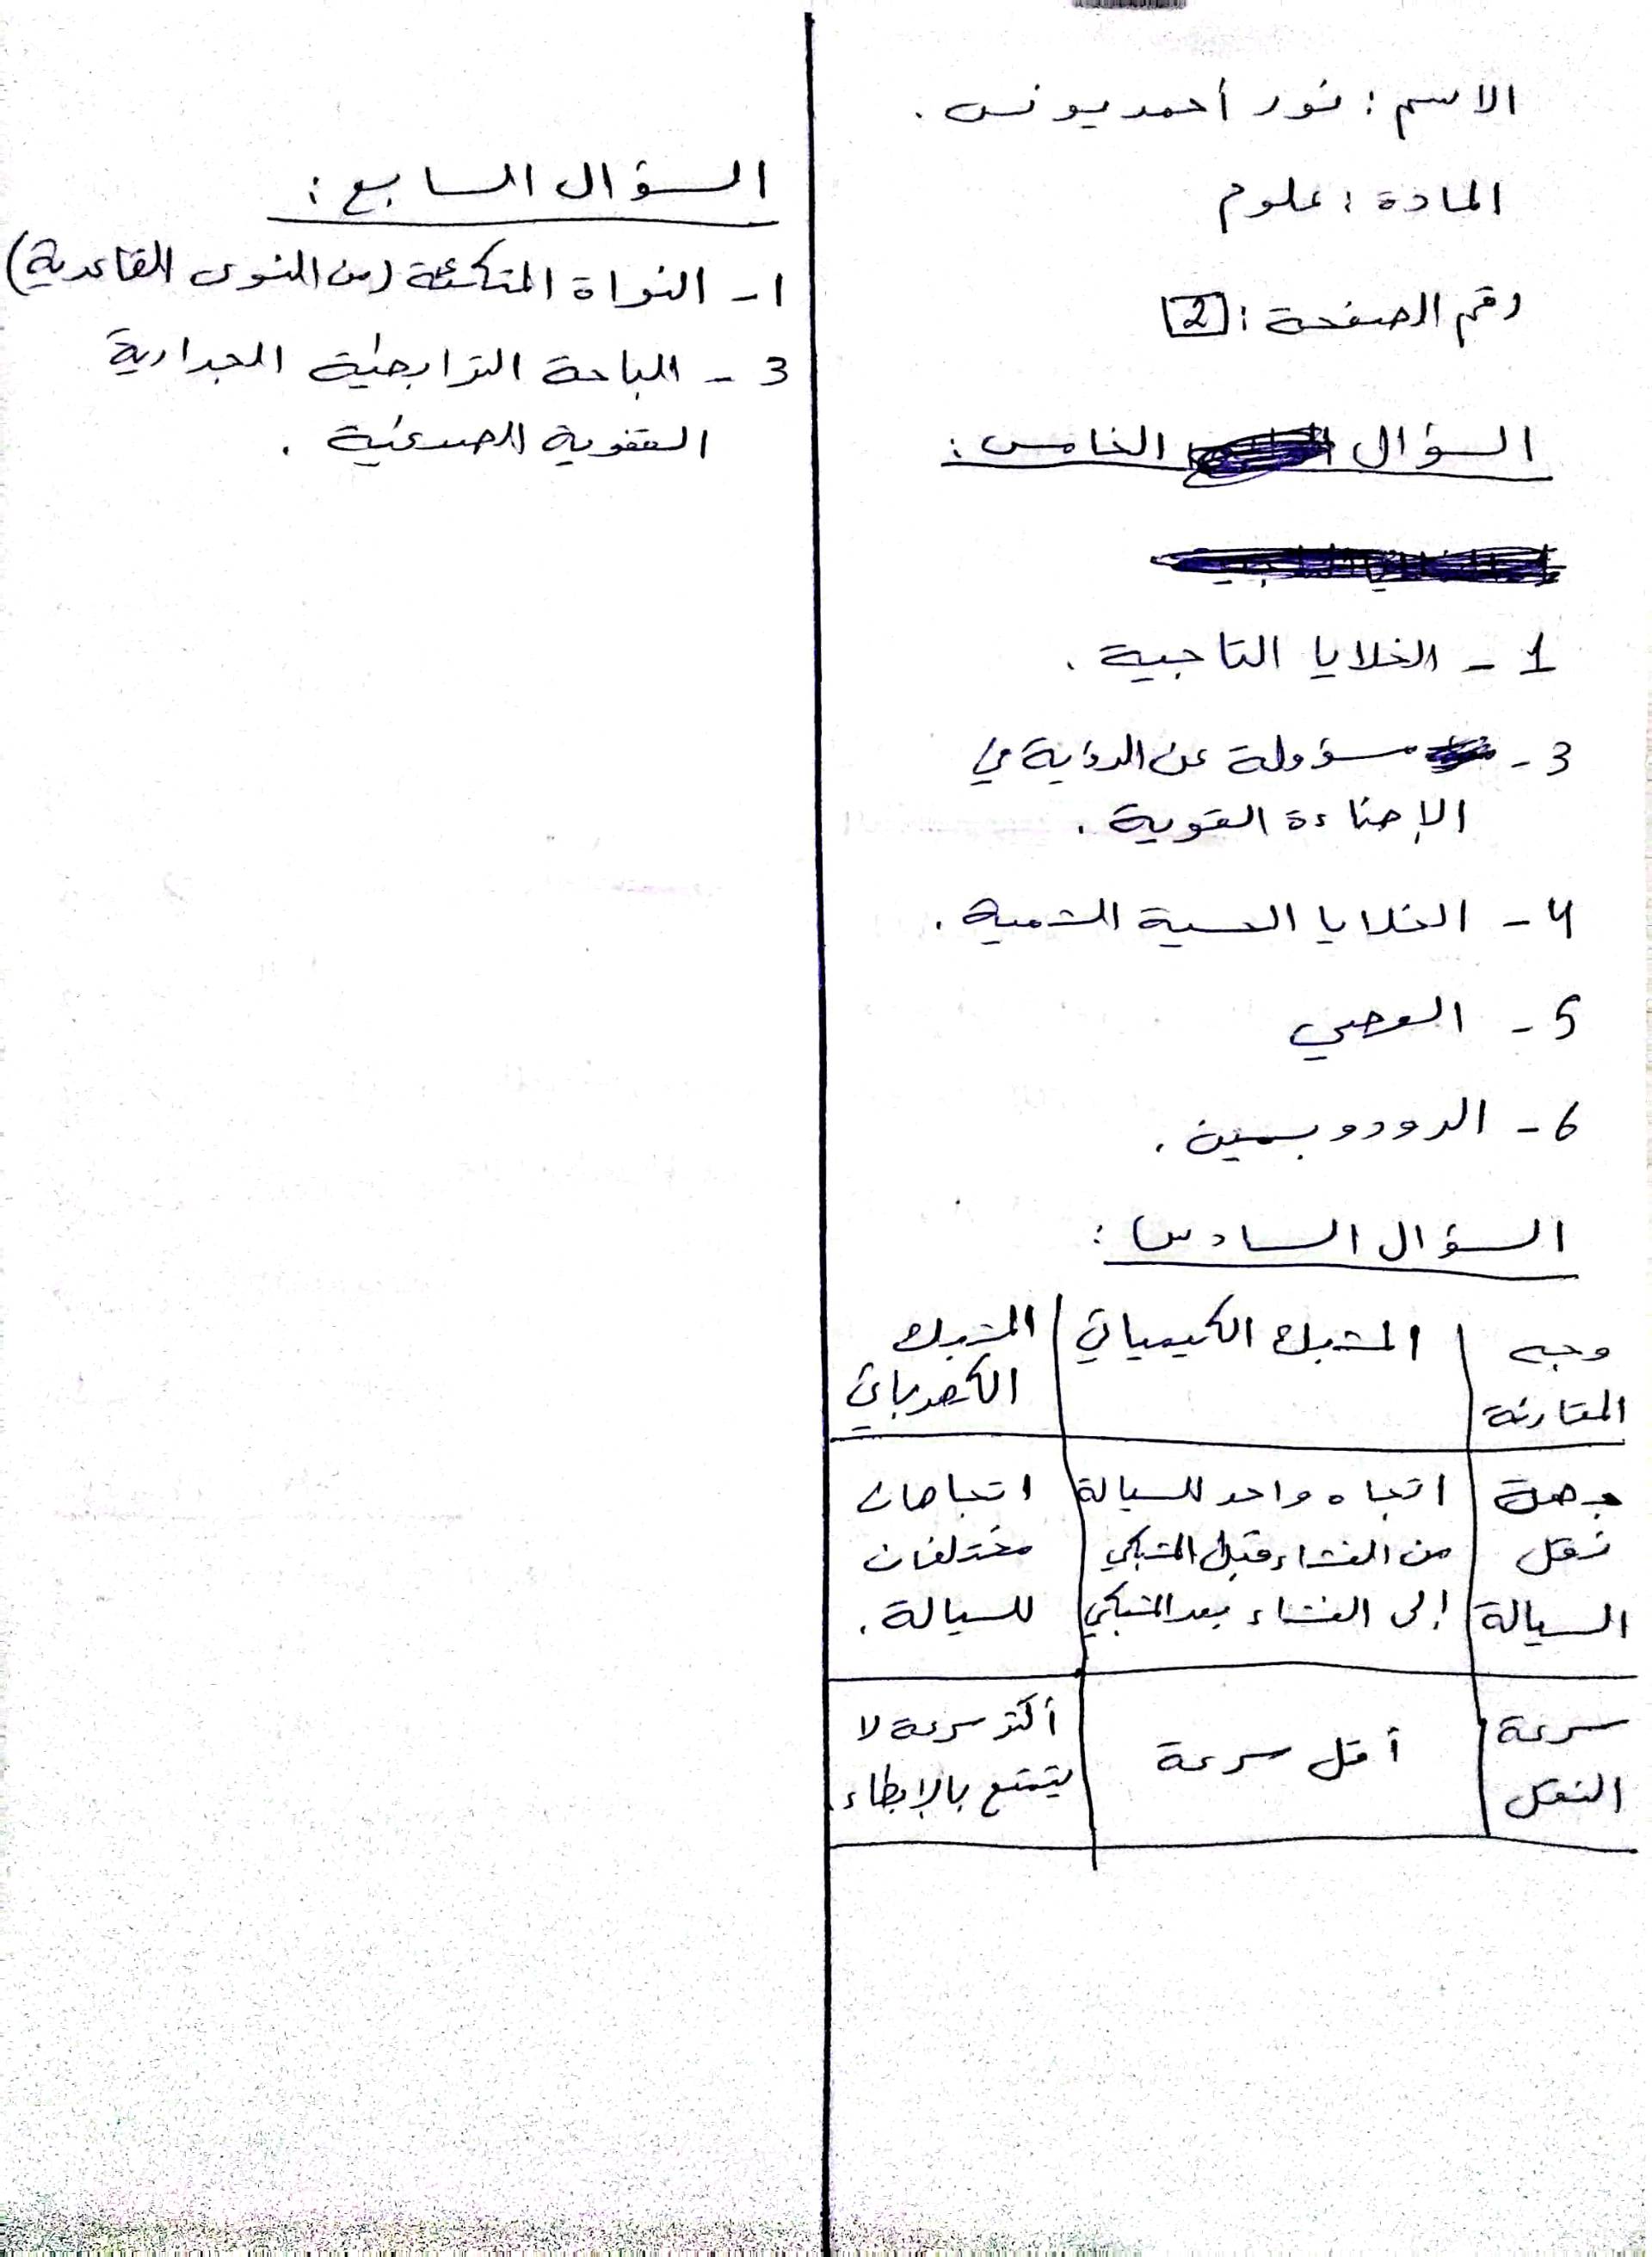 الاسم : نور أحمد يونس .
المادة : علوم
رقم الصفحة : 2
السؤال الخامس :
1 - الخلايا التاجية .
3 - مسؤولة عن الرؤية في
الإضاءة القوية .
4 - الخلايا الحسية الشمية .
5 - العصي
6 - الرودوبسين .
السؤال السادس :
وجه المقارنة | المشبك الكيميائي | المشبك الكهربائي
جهة نقل السيالة | اتجاه واحد للسيالة من الغشاء قبل المشبكي إلى الغشاء بعد المشبكي | اتجاهان مختلفان للسيالة .
سرعة النقل | أقل سرعة | أكثر سرعة لا يتمتع بالإبطاء .
السؤال السابع :
1 - النواة المتكئة (من النوى القاعدية)
3 - الباحة الترابطية الجدارية
القفوية الصدغية .